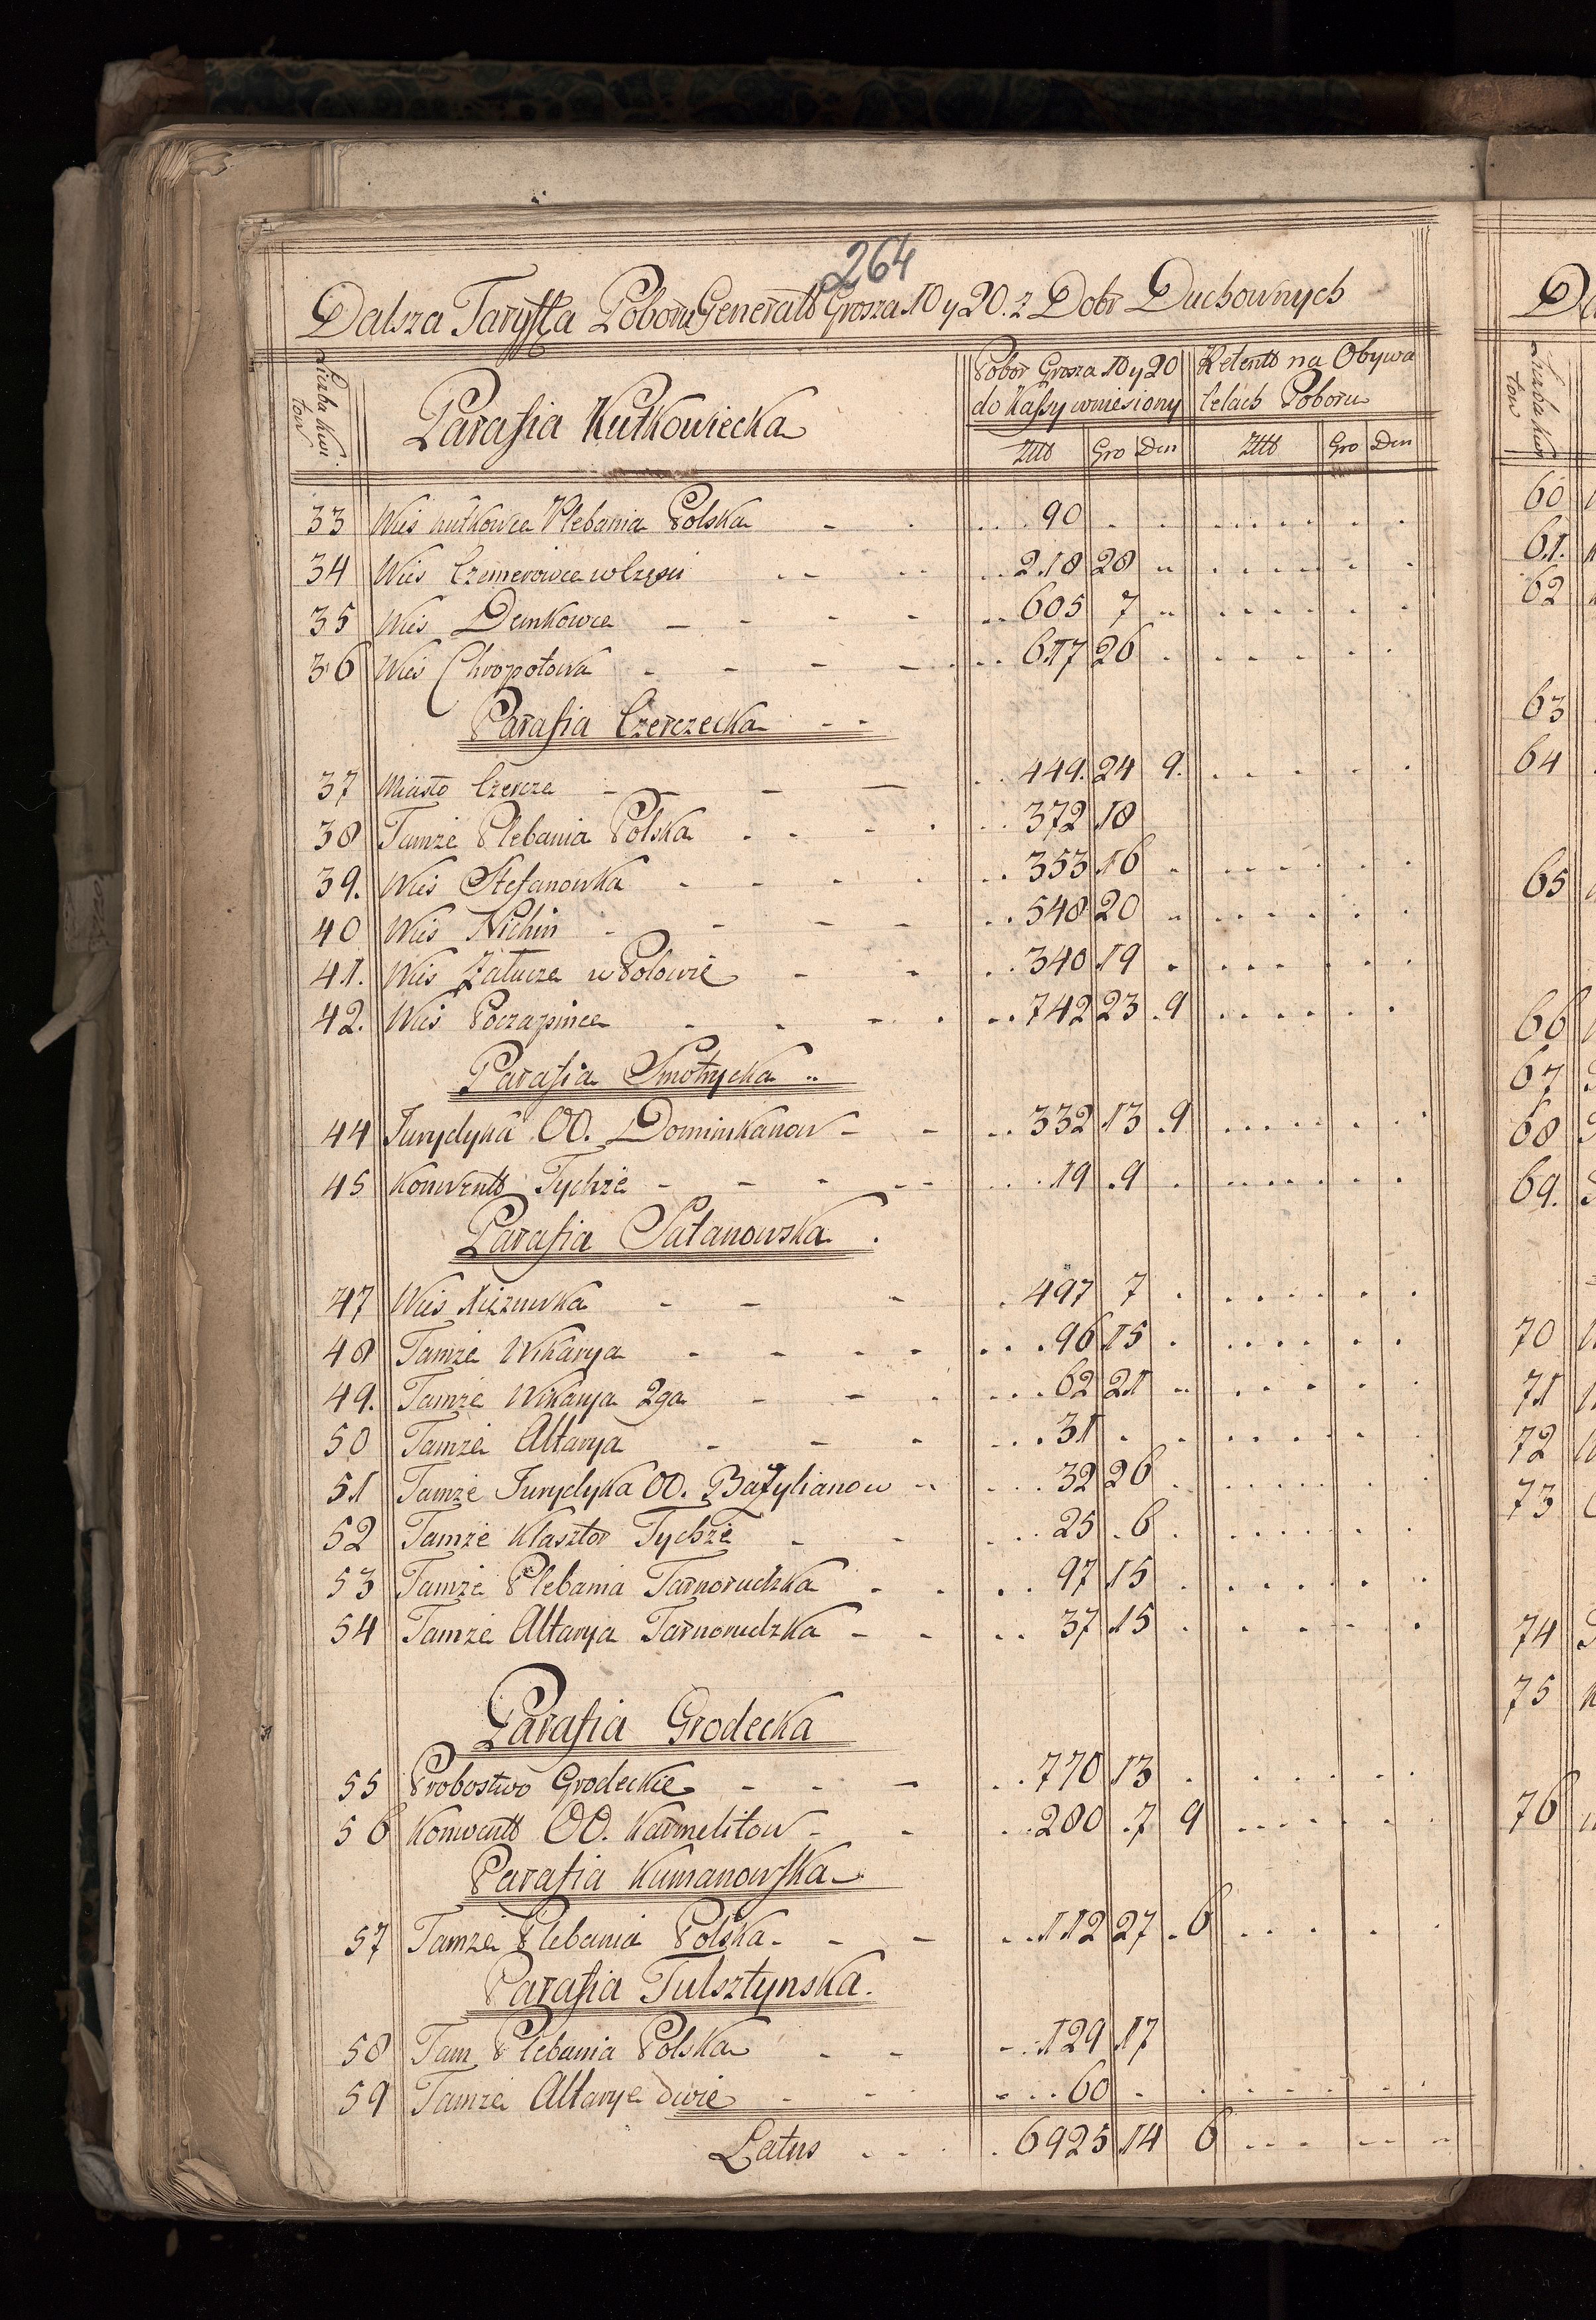 264
Dalsza Taryffa Poboru Generalo Grosza 10 y 20. z Dobr Duchownych
Liczba Kwi
tow
Parafia Kutkowiecka
Pobor Grosza 10 y 20
do Kassy wniesiony
Retento na Obywa
telach Poboru
Złto Gro Den Złto Gro Den
33 Wieś Kutkowce Plebania Polska 90
34 Wieś Czemerowce w Części 218 28
35 Wieś Demkowce 605 7
36 Wieś Chropotowa 617 26
Parafia Czerczecka
37 Miasto Czercze 449. 24 9.
38 Tamże Plebania Polska 372 18
39. Wieś Stefanowka 353 16
40 Wieś Nichin 548 20
41. Wieś Załucze w Polowie 340 19
42. Wieś Poczapince 742 23 9
Parafia Smotrycka
44 Jurydyka OO. Dominikanow 332 13 9
45 Konwento Tychże 19 9
Parafia Satanowska
47 Wieś Nizuwka 497 7
48 Tamże Wikarya 96 15
49. Tamże Wikarya 2ga 62 21
50 Tamże Altarya 31
51 Tamże Jurydyka OO. Bazylianow 32 26
52 Tamże Klasztor Tychże 25 6
53 Tamże Plebania Tarnorudzka 97 15
54 Tamże Altarya Tarnorudzka 37 15
Parafia Grodecka
55 Probostwo Grodeckie 770 13
56 Konwento OO. Karmelitow 280 7 9
Parafia Kumanowska
57 Tamże Plebania Polska 112 27 6
Parafia Tulsztynska.
58 Tam Plebania Polska 129 17
59 Tamże Altarye dwie 60
Latus 6925 14 6
60
61.
62
63
64
65
66
67
68
69.
70
71
72
73
74
75
76